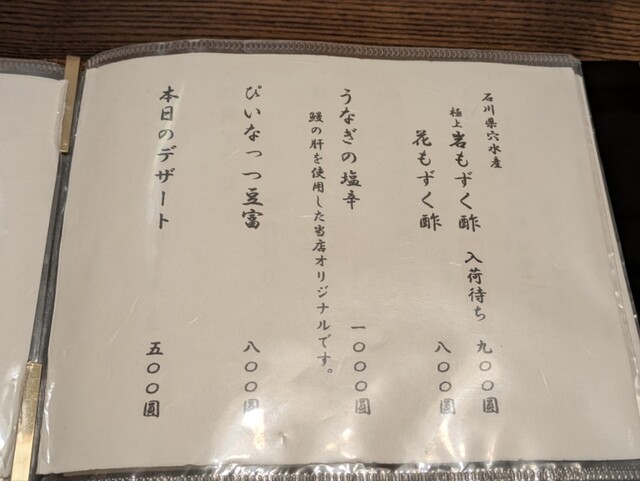 石川県穴水産
極上岩もずく酢 入荷待ち 九〇〇圓
花もずく酢 八〇〇圓
うなぎの塩辛 一〇〇〇圓
鰻の肝を使用した当店オリジナルです。
ぴいなっつ豆富 八〇〇圓
本日のデザート 五〇〇圓